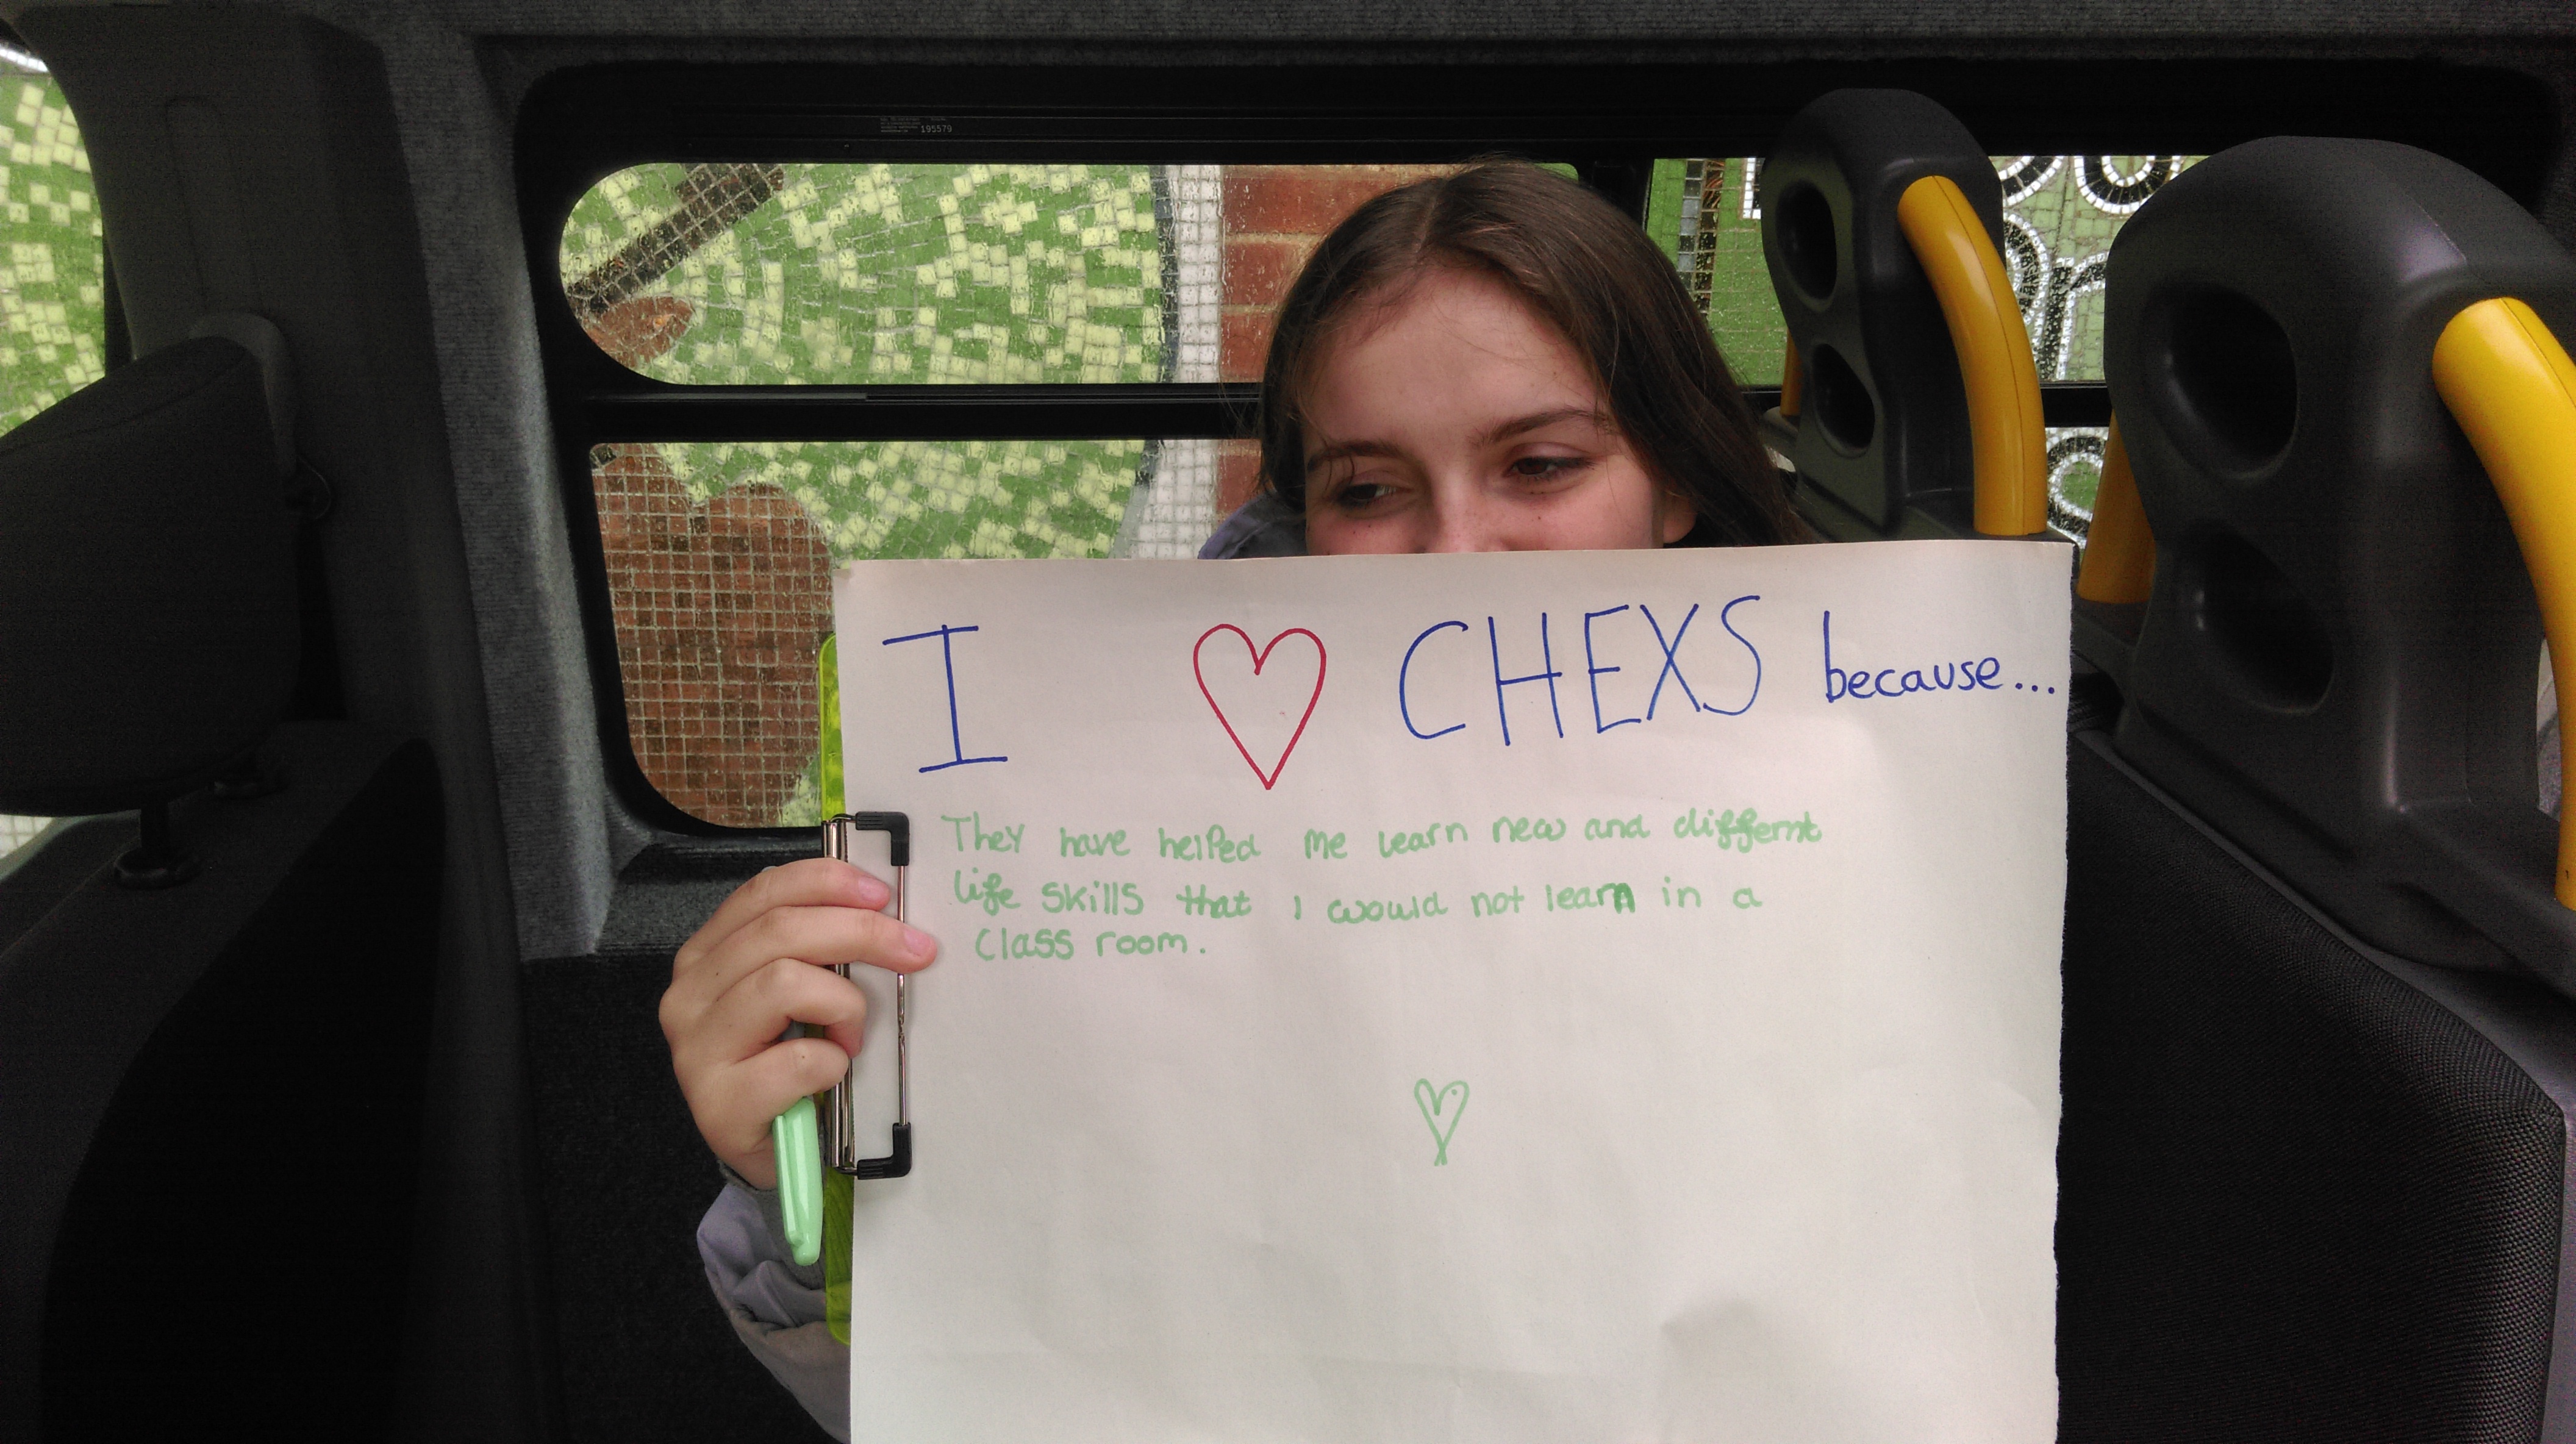 195579
I ♡ CHEXS because...
They have helped me learn new and differnt
life skills that I would not learn in a
class room.